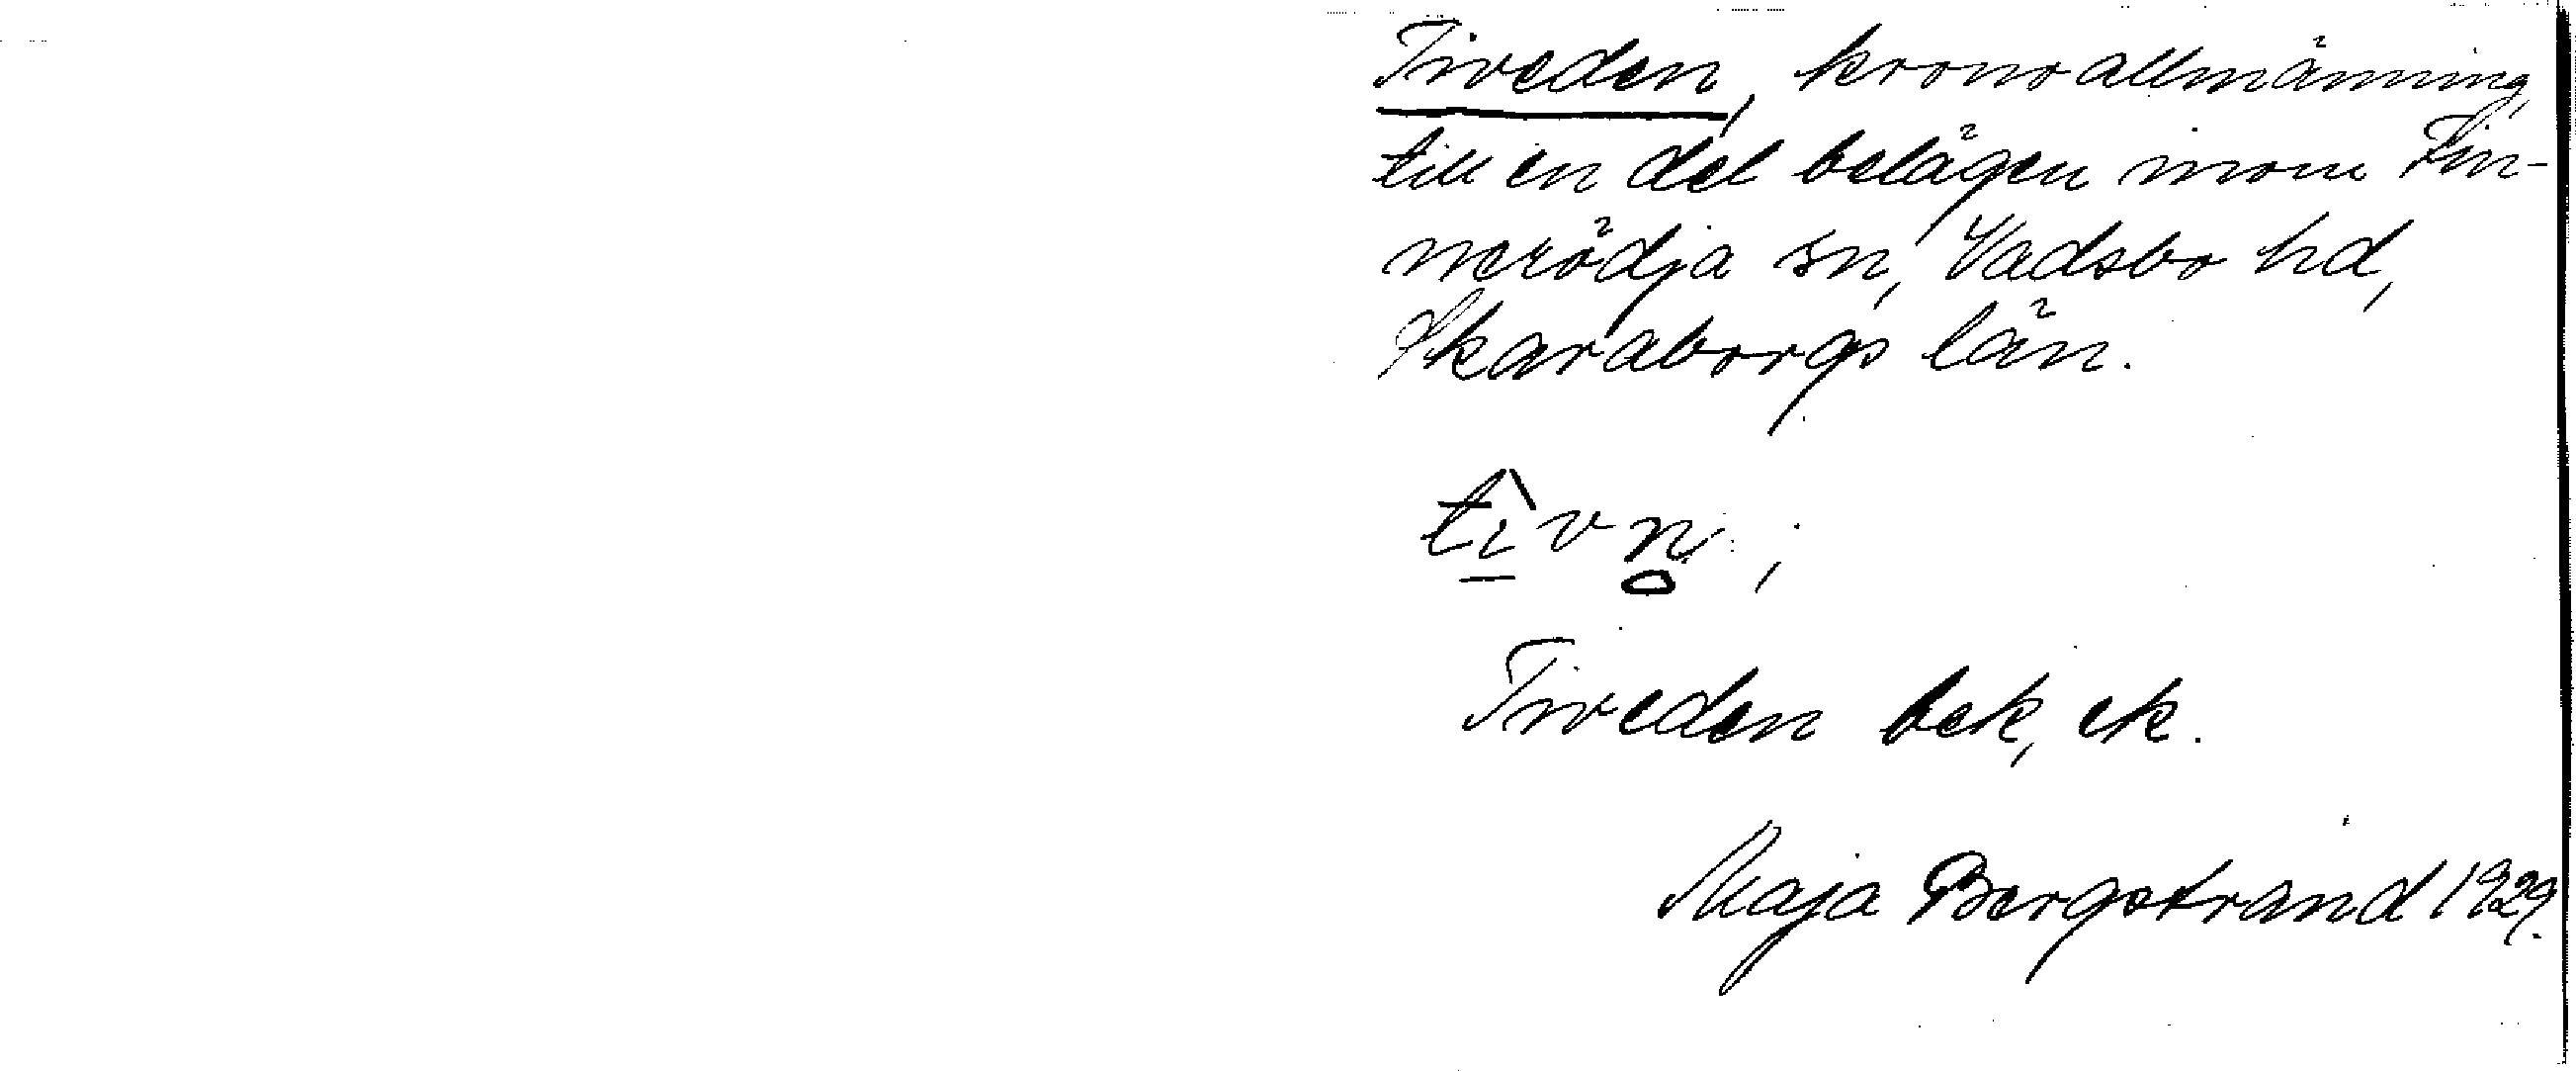 Tiveden, kronoallmänning,
till en del belägen inom Fin-
nerödja sn, Vadsbo hd,
Skaraborgs län.
tì̠vn̥;
Tiveden bek, ek.
Maja Bergstrand 1929.